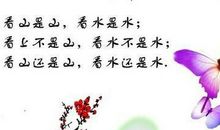 看山是山，看水是水；
看山不是山，看水不是水；
看山还是山，看水还是水.